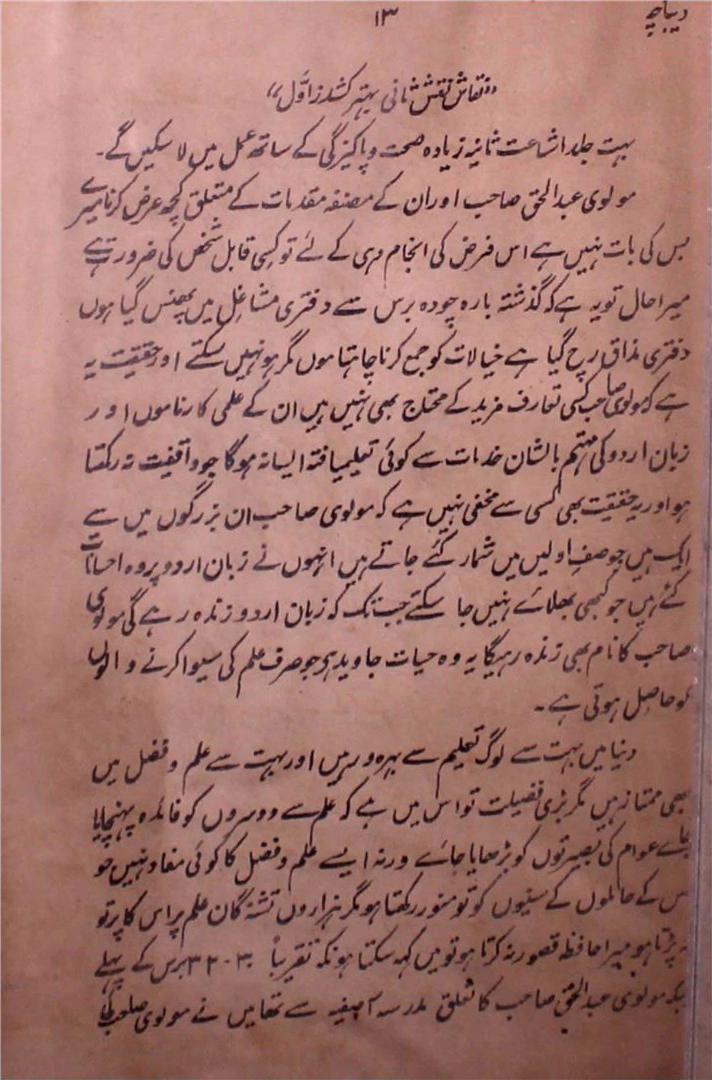 دیباچہ
۱۳
"نقاش نقش ثانی بہتر کشد ز اوّل"
بہت جلد اشاعت ثانیہ زیادہ صحت و پاکیزگی کے ساتھ عمل میں لا سکیں گے۔
مولوی عبدالحق صاحب اور ان کے مصنفہ مقدمات کے متعلق کچھ عرض کرنا میرے
بس کی بات نہیں ہے اس فرض کی انجام دہی کے لئے تو کسی قابل شخص کی ضرورت ہے
میرا حال تو یہ ہے کہ گذشتہ بارہ چودہ برس سے دفتری مشاغل میں پھنس گیا ہوں
دفتری مذاق رچ گیا ہے خیالات کو جمع کرنا چاہتا ہوں مگر ہو نہیں سکتے اور حقیقت یہ
ہے کہ مولوی صاحب کسی تعارف مزید کے محتاج بھی نہیں ہیں ان کے علمی کارناموں اور
زبان اردو کی مہتم بالشان خدمات سے کوئی تعلیمیافتہ ایسا نہ ہوگا جو واقفیت نہ رکھتا
ہو اور یہ حقیقت بھی کسی سے مخفی نہیں ہے کہ مولوی صاحب ان بزرگوں میں سے
ایک ہیں جو صف اولیں میں شمار کئے جاتے ہیں انہوں نے زبان اردو پر وہ احسانات
کئے ہیں جو کبھی بھلائے نہیں جا سکتے جب تک کہ زبان اردو زندہ رہے گی مولوی
صاحب کا نام بھی زندہ رہیگا یہ وہ حیات جاوید ہی جو صرف علم کی سیوا کرنے والوں
کو حاصل ہوتی ہے۔
دنیا میں بہت سے لوگ تعلیم سے بہرہ ور ہیں اور بہت سے علم و فضل میں
بھی ممتاز ہیں مگر بڑی فضیلت تو اس میں ہے کہ علم سے دوسروں کو فائدہ پہنچایا
جائے عوام کی بصیرتوں کو بڑھایا جائے ورنہ ایسے علم و فضل کا کوئی مفاد نہیں جو
اس کے حاملوں کے سینوں کو تو منور رکھتا ہو مگر ہزاروں تشنہ گان علم پر اس کا پرتو
نہ پڑتا ہو میرا حافظہ قصور نہ کرتا ہو تو میں کہہ سکتا ہونکہ تقریباً ۳۰-۳۲ برس کے پہلے
جبکہ مولوی عبدالحق صاحب کا تعلق مدرسہ آصفیہ سے تھا میں نے مولوی صاحب کی